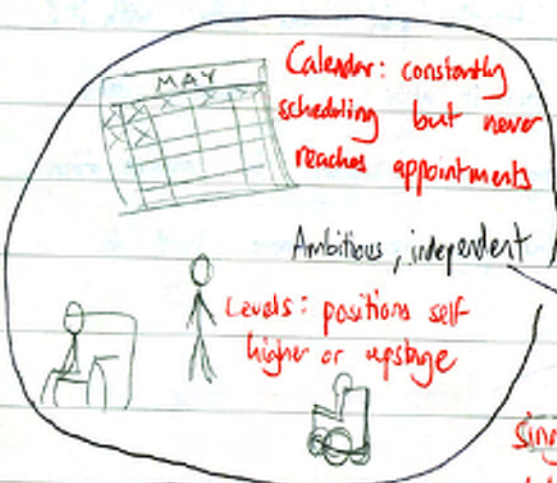 MAY
Calendar: constantly
scheduling but never
reaches appointments
Ambitious, independent
Levels: positions self
higher or upstage